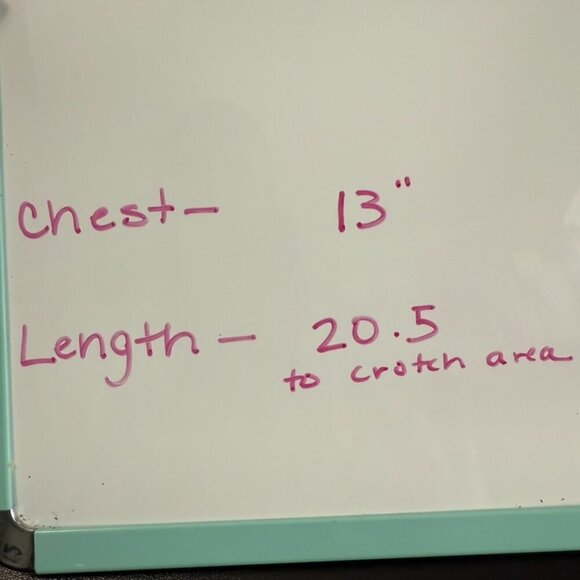 Chest- 13"
Length - 20.5
to crotch area